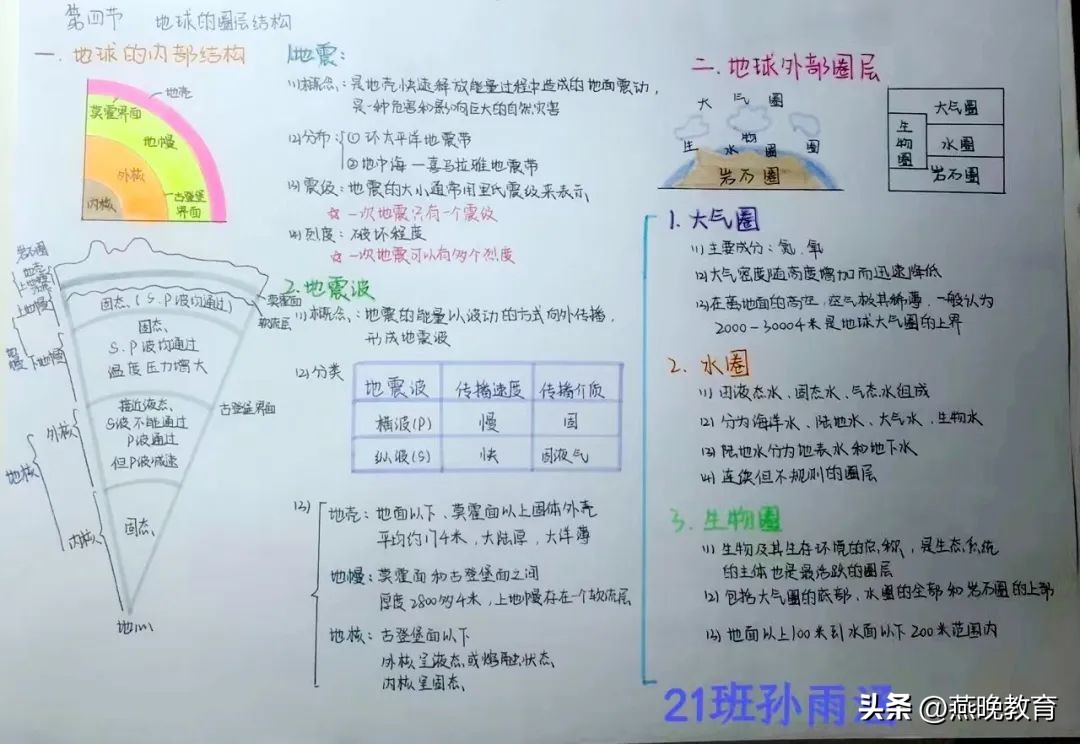 第四节 地球的圈层结构
一.地球的内部结构
地壳
莫霍界面
地幔
外核
古登堡
界面
内核
岩石圈
地壳
上地幔
顶部
上地幔
地幔
下地幔
外核
地核
内核
固态(S.P波均通过)
莫霍面
软流层
固态
S.P波均通过
温度压力增大
古登堡界面
接近液态
S波不能通过
P波通过
但P波减速
固态
地心
1地震:
(1)概念:是地壳快速释放能量过程中造成的地面震动,
是一种危害和影响巨大的自然灾害
(2)分布:①环太平洋地震带
②地中海—喜马拉雅地震带
(3)震级:地震的大小通常用里氏震级来表示
☆一次地震只有一个震级
(4)烈度:破坏程度
☆一次地震可以有多个烈度
2.地震波
(1)概念:地震的能量以波动的方式向外传播,
形成地震波
(2)分类
地震波 传播速度 传播介质
横波(P) 慢 固
纵波(S) 快 固液气
(3)
地壳:地面以下、莫霍面以上固体外壳
平均约17千米,大陆厚,大洋薄
地幔:莫霍面和古登堡面之间
厚度2800多千米,上地幔存在一个软流层
地核:古登堡面以下
外核呈液态或熔融状态
内核呈固态
二.地球外部圈层
大气圈
生物圈
水圈
岩石圈
大气圈
生物圈
水圈
岩石圈
1.大气圈
(1)主要成分:氮.氧
(2)大气密度随高度增加而迅速降低
(3)在离地面的高空,空气极其稀薄,一般认为
2000-3000千米是地球大气圈的上界
2.水圈
(1)由液态水、固态水、气态水组成
(2)分为海洋水、陆地水、大气水、生物水
(3)陆地水分为地表水和地下水
(4)连续但不规则的圈层
3.生物圈
(1)生物及其生存环境的总称,是生态系统
的主体也是最活跃的圈层
(2)包括大气圈的底部、水圈的全部和岩石圈的上部
(3)地面以上100米到水面以下200米范围内
21班孙雨涵
头条@燕晚教育